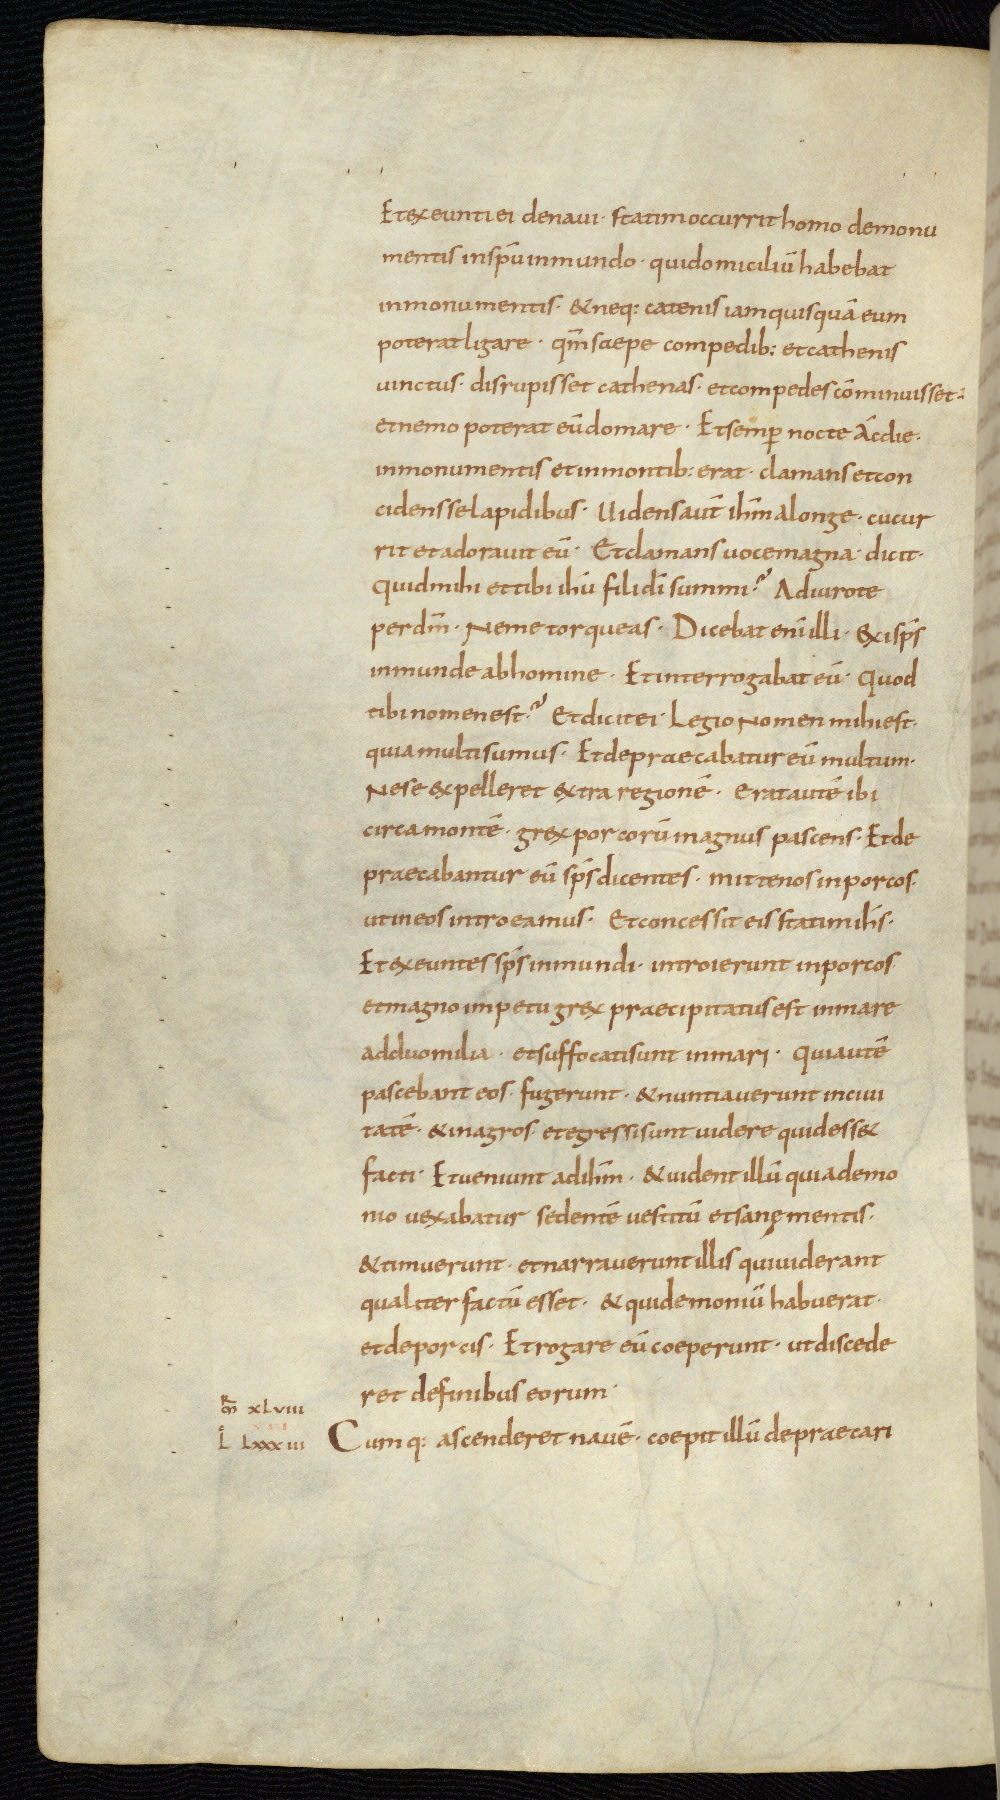 Et exeunti ei denaui· statim occurrit homo demonu
mentis inspū inmundo· qui domiciliū habebat
inmonumentis· & neq: catenis iam quisquā eum
poterat ligare· qm̄ saepe compedib: et cathenis
uinctus· disrupisset cathenas· et compedes cōminuisset·
et nemo poterat eū domare· Et semp nocte ac die·
inmonumentis et inmontib: erat· clamans et con
cidens se lapidibus· Uidens aut̄ ihm̄ alonge· cucur
rit et adorauit eū· Et clamans uoce magna· dicit·
quid mihi et tibi ihū fili dī summi? Adiuro te
per dm̄· Ne me torqueas· Dicebat enī illi· exi sps̄
inmunde ab homine· Et interrogabat eū· Quod
tibi nomen est? Et dicit ei· Legio Nomen mihi est·
quia multi sumus· Et depraecabatur eū multum·
Ne se expelleret extra regionē· Erat autē ibi
circa montē· grex porcorū magnus pascens· Et de
praecabantur eū sps̄ dicentes· mitte nos inporcos·
ut in eos introeamus· Et concessit eis statim ihs̄·
Et exeuntes sps̄ inmundi· introierunt inporcos·
et magno impetu grex praecipitatus est inmare
ad duo milia· et suffocati sunt inmari· Qui autē
pascebant eos· fugerunt· & nuntiauerunt inciui
tatē· & inagros· et egressi sunt uidere quid ess&
facti· Et ueniunt ad ihm̄· & uident illū qui ademo
nio uexabatur sedentē uestitū et sanę mentis·
& timuerunt· et narrauerunt illis qui uiderant
qualiter factū esset· & qui demoniū habuerat·
et deporcis· Et rogare eū coeperunt· ut discede
ret definibus eorum·
xlviii
L lxxxiii Cumq: ascenderet nauē· coepit illū depraecari